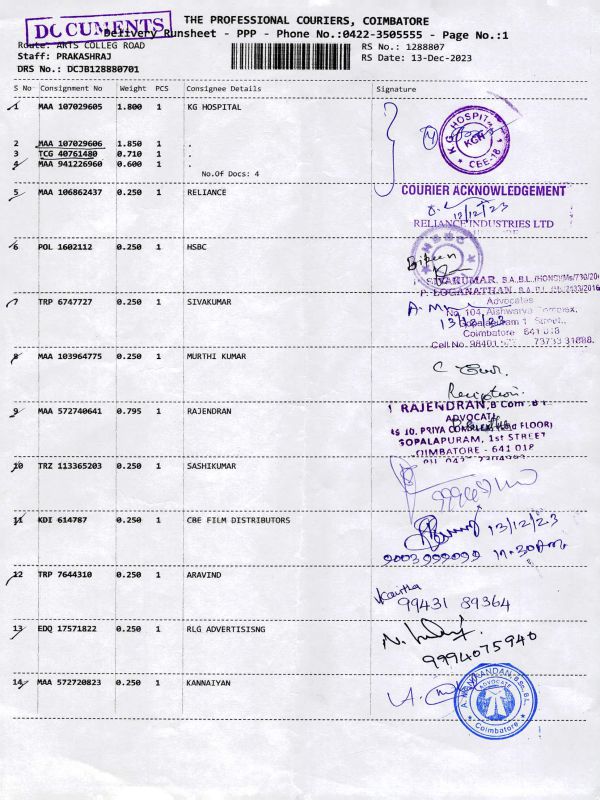 THE PROFESSIONAL COURIERS, COIMBATORE
DOCUMENTS
Delivery Runsheet - PPP - Phone No.:0422-3505555 - Page No.:1
Route: ARTS COLLEG ROAD
RS No.: 1288807
Staff: PRAKASHRAJ
RS Date: 13-Dec-2023
DRS No.: DCJB128880701
S No Consignment No Weight PCS Consignee Details Signature
1 MAA 107029605 1.800 1 KG HOSPITAL
K G HOSPITAL
KGH
CBE-18
2 MAA 107029606 1.850 1 .
3 TCG 40761480 0.710 1 .
4 MAA 941226960 0.600 1 .
No.Of Docs: 4
5 MAA 106862437 0.250 1 RELIANCE
COURIER ACKNOWLEDGEMENT
12/12/23
RELIANCE INDUSTRIES LTD
6 POL 1602112 0.250 1 HSBC
SIVAKUMAR, B.A,B.L,(HONS)Ms/730/20
P. LOGANATHAN, B.A, B.L.
7 TRP 6747727 0.250 1 SIVAKUMAR
Advocates
No 104, Aishwarya Complex,
Gopalapuram 1 Street,
13/12/23
Coimbatore 641 018
Cell No. 98401
8 MAA 103964775 0.250 1 MURTHI KUMAR
Reception.
9 MAA 572740641 0.795 1 RAJENDRAN
RAJENDRAN, B Com
ADVOCATE
GOPALAPURAM, 1st STREET
COIMBATORE - 641 018
10 TRZ 113365203 0.250 1 SASHIKUMAR
11 KDI 614787 0.250 1 CBE FILM DISTRIBUTORS
13/12/23
9003999099 11.30am
12 TRP 7644310 0.250 1 ARAVIND
Kavitha
99431 89364
13 EDQ 17571822 0.250 1 RLG ADVERTISISNG
9994075940
14 MAA 572720823 0.250 1 KANNAIYAN
ADVOCATE
Coimbatore